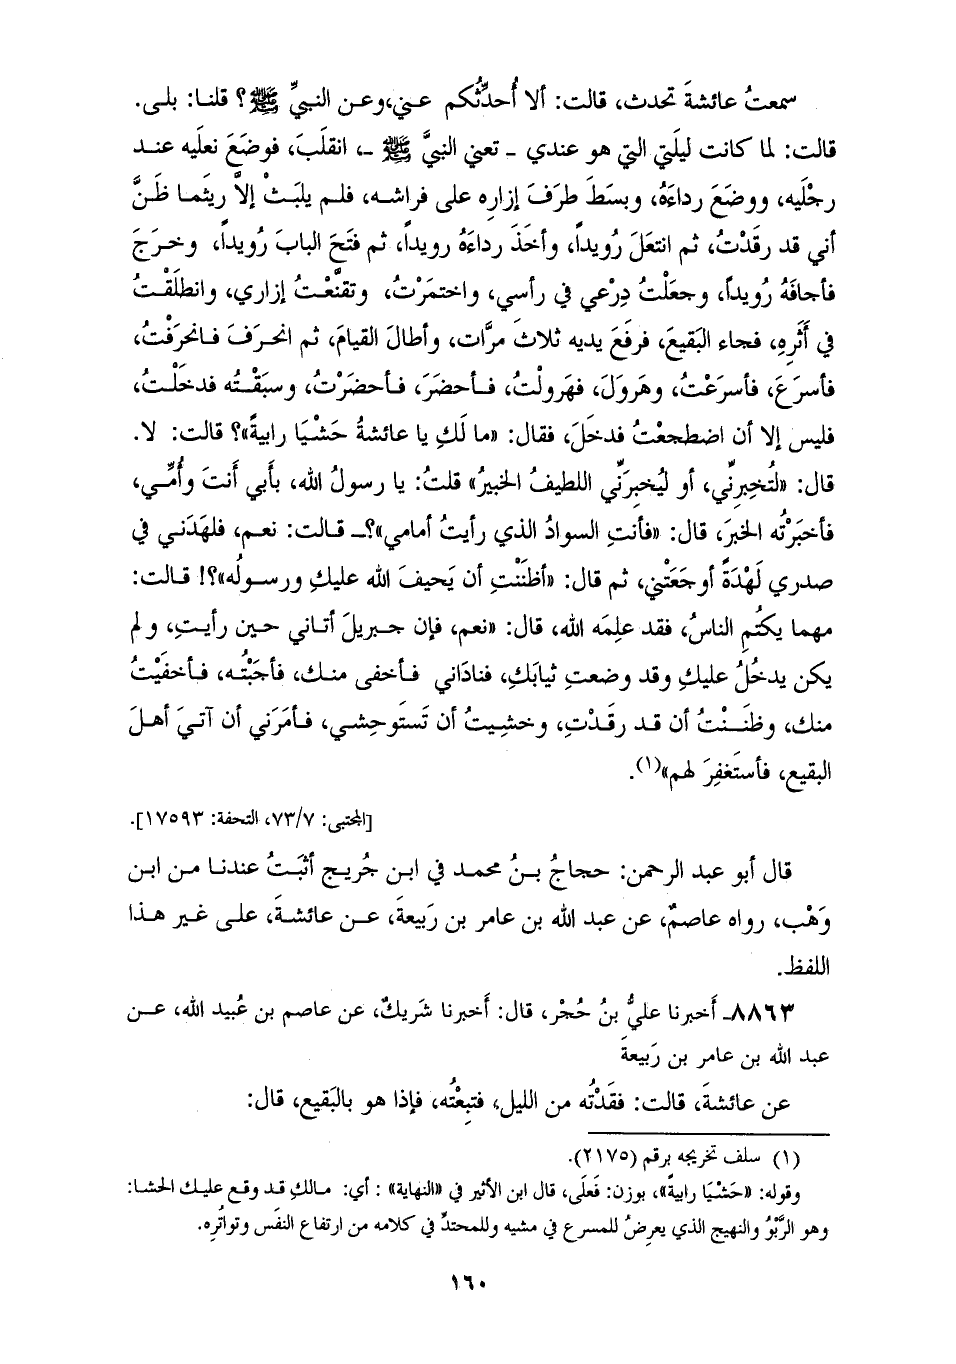 سمعتُ عائشةَ تحدث، قالت: ألا أُحدِّثُكم عني،وعن النبيِّ ﷺ؟ قلنا: بلى.
قالت: لما كانت ليلَتي التي هو عندي - تعني النبيَّ ﷺ -، انقلَبَ، فوضَعَ نعلَيه عند
رجْلَيه، ووضَعَ رداءَهُ، وبسَطَ طرَفَ إزارِه على فراشه، فلم يلبَثْ إلاَّ ريثَما ظَنَّ
أني قد رقَدْتُ، ثم انتعَلَ رُويداً، وأخَذَ رداءَهُ رويداً، ثم فتَحَ البابَ رُويداً، وخرَجَ
فأجافَهُ رُويداً، وجعَلْتُ دِرْعي في رأسي، واختمَرْتُ، وتقنَّعْتُ إزاري، وانطلَقْتُ
في أَثَرِهِ، فجاء البَقيعَ، فرفَعَ يديه ثلاثَ مرَّات، وأطالَ القيامَ، ثم انحرَفَ فانحرَفْتُ،
فأسرَعَ، فأسرَعْتُ، وهَروَلَ، فهَرولْتُ، فأحضَرَ، فأحضَرْتُ، وسبَقْتُه فدخَلْتُ،
فليس إلا أن اضطجعْتُ فدخلَ، فقال: «ما لَكِ يا عائشةُ حَشْيَا رابيةً»؟ قالت: لا.
قال: «لتُخبِرِنِّي، أو ليُخبِرَنِّي اللطيفُ الخبيرُ» قلتُ: يا رسولُ الله، بأَبي أَنتَ وأُمِّي،
فأخبَرْتُه الخبَرَ، قال: «فأنتِ السوادُ الذي رأيتُ أمامي»؟- قالت: نعم، فلهَدَني في
صدري لَهْدَةً أوجَعَتْني، ثم قال: «أظنَنْتِ أن يَحيفَ الله عليكِ ورسولُه»؟! قالت:
مهما يكتُمِ الناسُ، فقد علِمَه الله، قال: «نعم، فإن جبريلَ أتاني حين رأيتِ، ولم
يكن يدخُلُ عليكِ وقد وضعتِ ثيابَكِ، فنادَاني فأخفى منك، فأجَبْتُه، فأخفَيْتُ
منك، وظَنَنْتُ أن قد رقَدْتِ، وخشِيتُ أن تَستَوحِشي، فأمَرَني أن آتيَ أهلَ
البقيع، فأستَغفِرَ لهم»(١).
[المجتبى: ٧٣/٧، التحفة: ١٧٥٩٣].
قال أبو عبد الرحمن: حجاجُ بنُ محمد في ابن جُريج أثبَتُ عندنا من ابن
وَهْب، رواه عاصمٌ، عن عبد الله بن عامر بن رَبيعةَ، عن عائشةَ، على غير هذا
اللفظ.
٨٨٦٣- أَخبرنا عليُّ بنُ حُجْر، قال: أَخبرنا شَريكٌ، عن عاصم بن عُبيد الله، عن
عبد الله بن عامر بن رَبيعةَ
عن عائشةَ، قالت: فقَدْتُه من الليل، فتبِعْتُه، فإذا هو بالبَقيع، قال:
(١) سلف تخريجه برقم (٢١٧٥).
وقوله: «حَشْيَا رابيةً»، بوزن: فَعلَى، قال ابن الأثير في «النهاية» : أي: مالكِ قد وقع عليك الحشا:
وهو الرَّبْوُ والنهيج الذي يعرِضُ للمسرع في مشيه وللمحتدِّ في كلامه من ارتفاع النفَس وتواتُرِه.
١٦٠